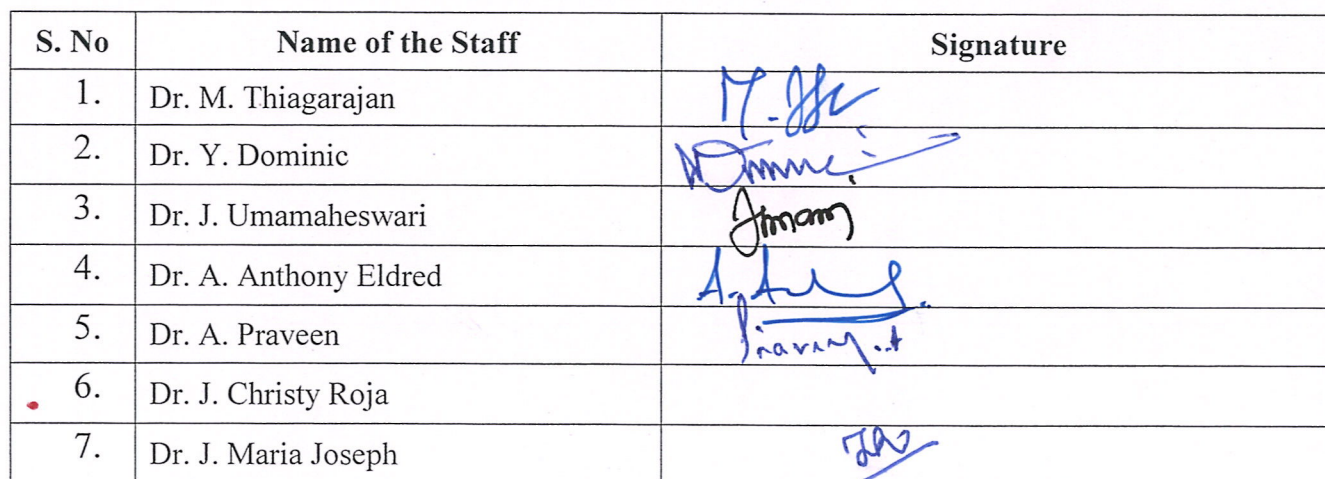 S. No Name of the Staff Signature
1. Dr. M. Thiagarajan
2. Dr. Y. Dominic
3. Dr. J. Umamaheswari
4. Dr. A. Anthony Eldred
5. Dr. A. Praveen
6. Dr. J. Christy Roja
7. Dr. J. Maria Joseph